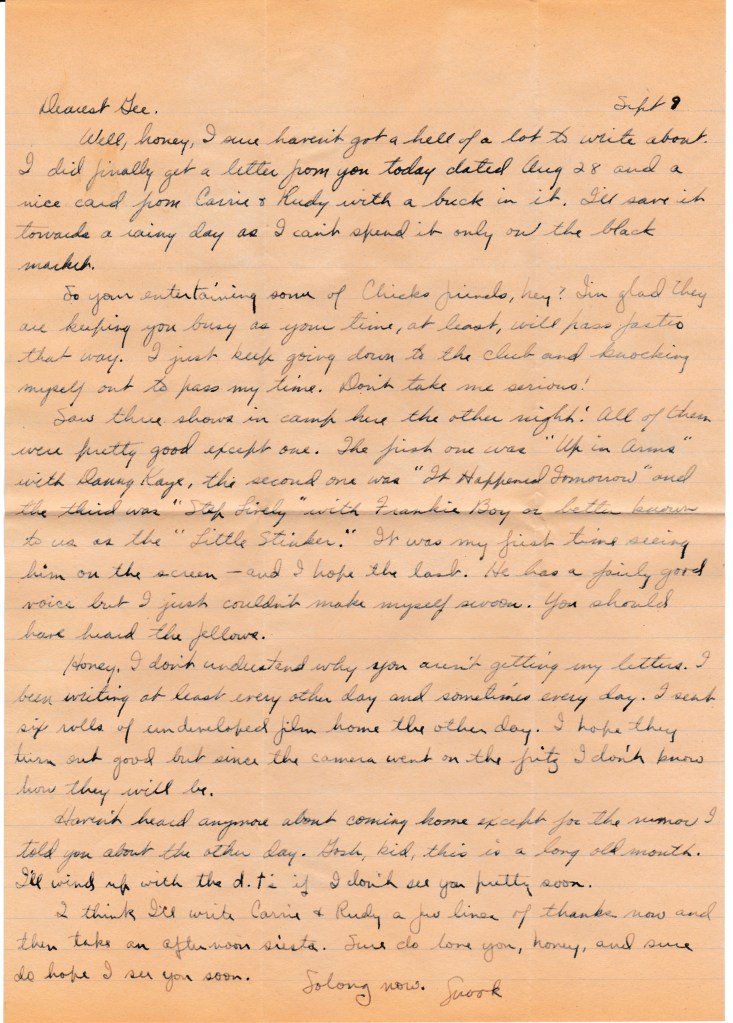 Dearest Gee. Sept 9
Well, honey, I sure haven't got a hell of a lot to write about.
I did finally get a letter from you today dated Aug 28 and a
nice card from Carrie & Rudy with a buck in it. I'll save it
towards a rainy day as I can't spend it only on the black
market.
So your entertaining some of Chicks friends, hey? I'm glad they
are keeping you busy as your time, at least, will pass faster
that way. I just keep going down to the club and knocking
myself out to pass my time. Don't take me serious!
Saw three shows in camp here the other night. All of them
were pretty good except one. The first one was "Up in Arms"
with Danny Kaye, the second one was "It Happened Tomorrow" and
the third was "Step Lively" with Frankie Boy or better known
to us as the "Little Stinker." It was my first time seeing
him on the screen – and I hope the last. He has a fairly good
voice but I just couldn't make myself swoon. You should
have heard the fellows.
Honey, I don't understand why you aren't getting my letters. I
been writing at least every other day and sometimes every day. I sent
six rolls of undeveloped film home the other day. I hope they
turn out good but since the camera went on the fritz I don't know
how they will be.
Haven't heard anymore about coming home except for the rumor I
told you about the other day. Gosh, kid, this is a long old month.
I'll wind up with the d.t's if I don't see you pretty soon.
I think I'll write Carrie & Rudy a few lines of thanks now and
then take an afternoon siesta. Sure do love you, honey, and sure
do hope I see you soon.
Solong now. Snook